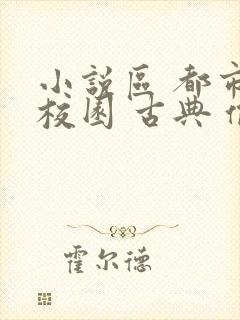 小說區 都市
校園 古典
霍尔德